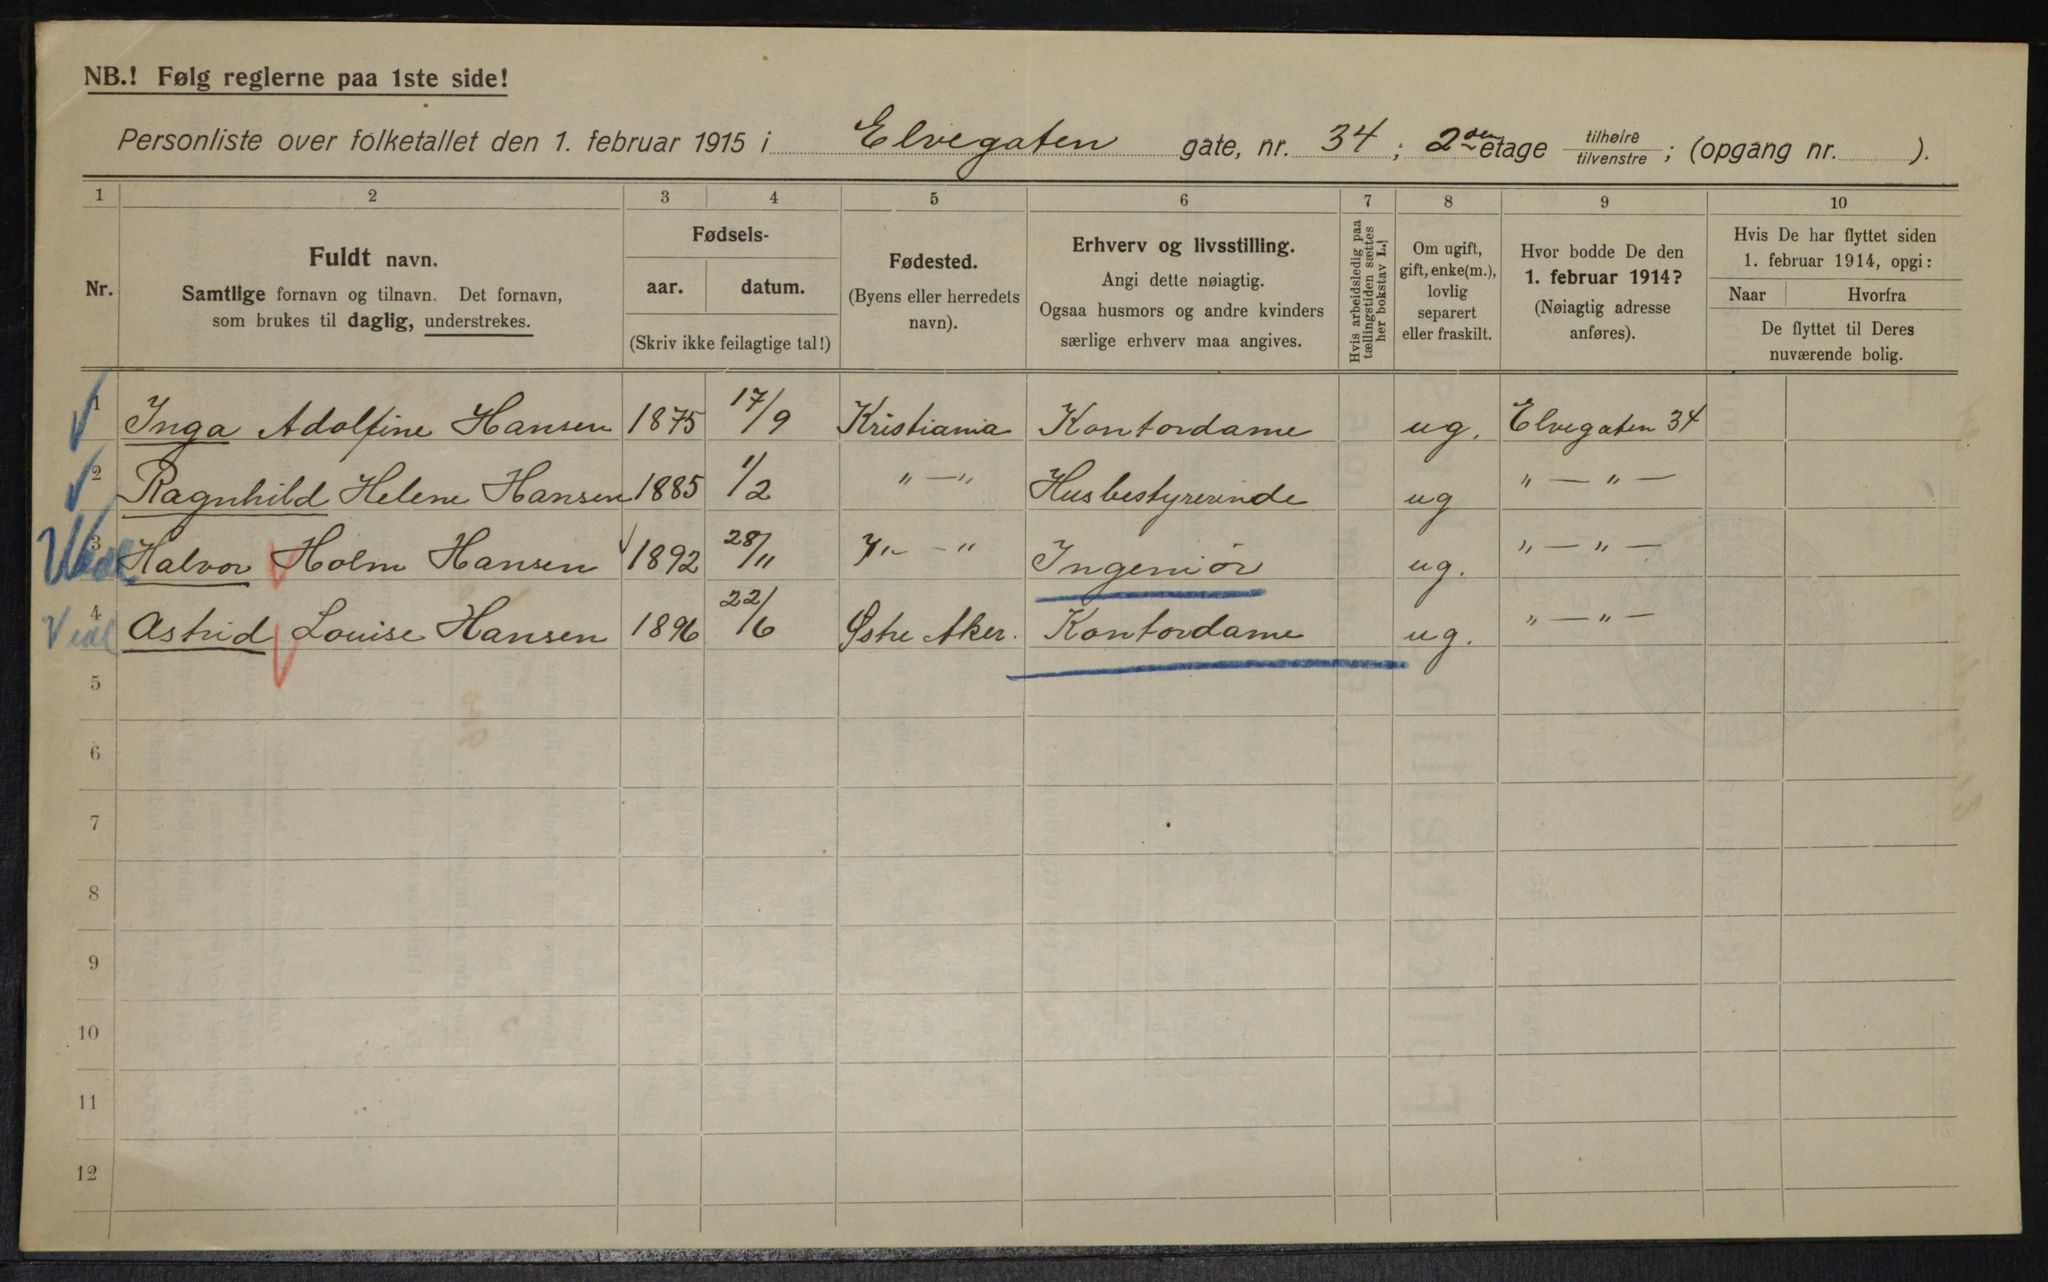 NB.! Følg reglerne paa 1ste side!
Personliste over folketallet den 1. februar 1915 i Elvegaten gate, nr. 34; 2den etage tilhøire tilvenstre; (opgang nr. ).
1 2 3 4 5 6 7 8 9 10
Nr.
Fuldt navn.
Samtlige fornavn og tilnavn. Det fornavn,
som brukes til daglig, understrekes.
Fødsels-
aar. datum.
(Skriv ikke feilagtige tal!)
Fødested.
(Byens eller herredets
navn).
Erhverv og livsstilling.
Angi dette nøiagtig.
Ogsaa husmors og andre kvinders
særlige erhverv maa angives.
Hvis arbeidsledig paa
tællingstiden sættes
her bokstav L.]
Om ugift,
gift, enke(m.),
lovlig
separert
eller fraskilt.
Hvor bodde De den
1. februar 1914?
(Nøiagtig adresse
anføres).
Hvis De har flyttet siden
1. februar 1914, opgi:
Naar Hvorfra
De flyttet til Deres
nuværende bolig.
1 Inga Adolfine Hansen 1875 17/9 Kristiania Kontordame ug. Elvegaten 34
2 Ragnhild Helene Hansen 1885 1/2 " — " Husbestyrerinde ug " — " —
3 Halvor Holm Hansen 1892 28/11 " — " Ingeniør ug. " — " —
4 Astrid Louise Hansen 1896 22/6 Østre Aker. Kontordame ug. " — " —
5
6
7
8
9
10
11
12